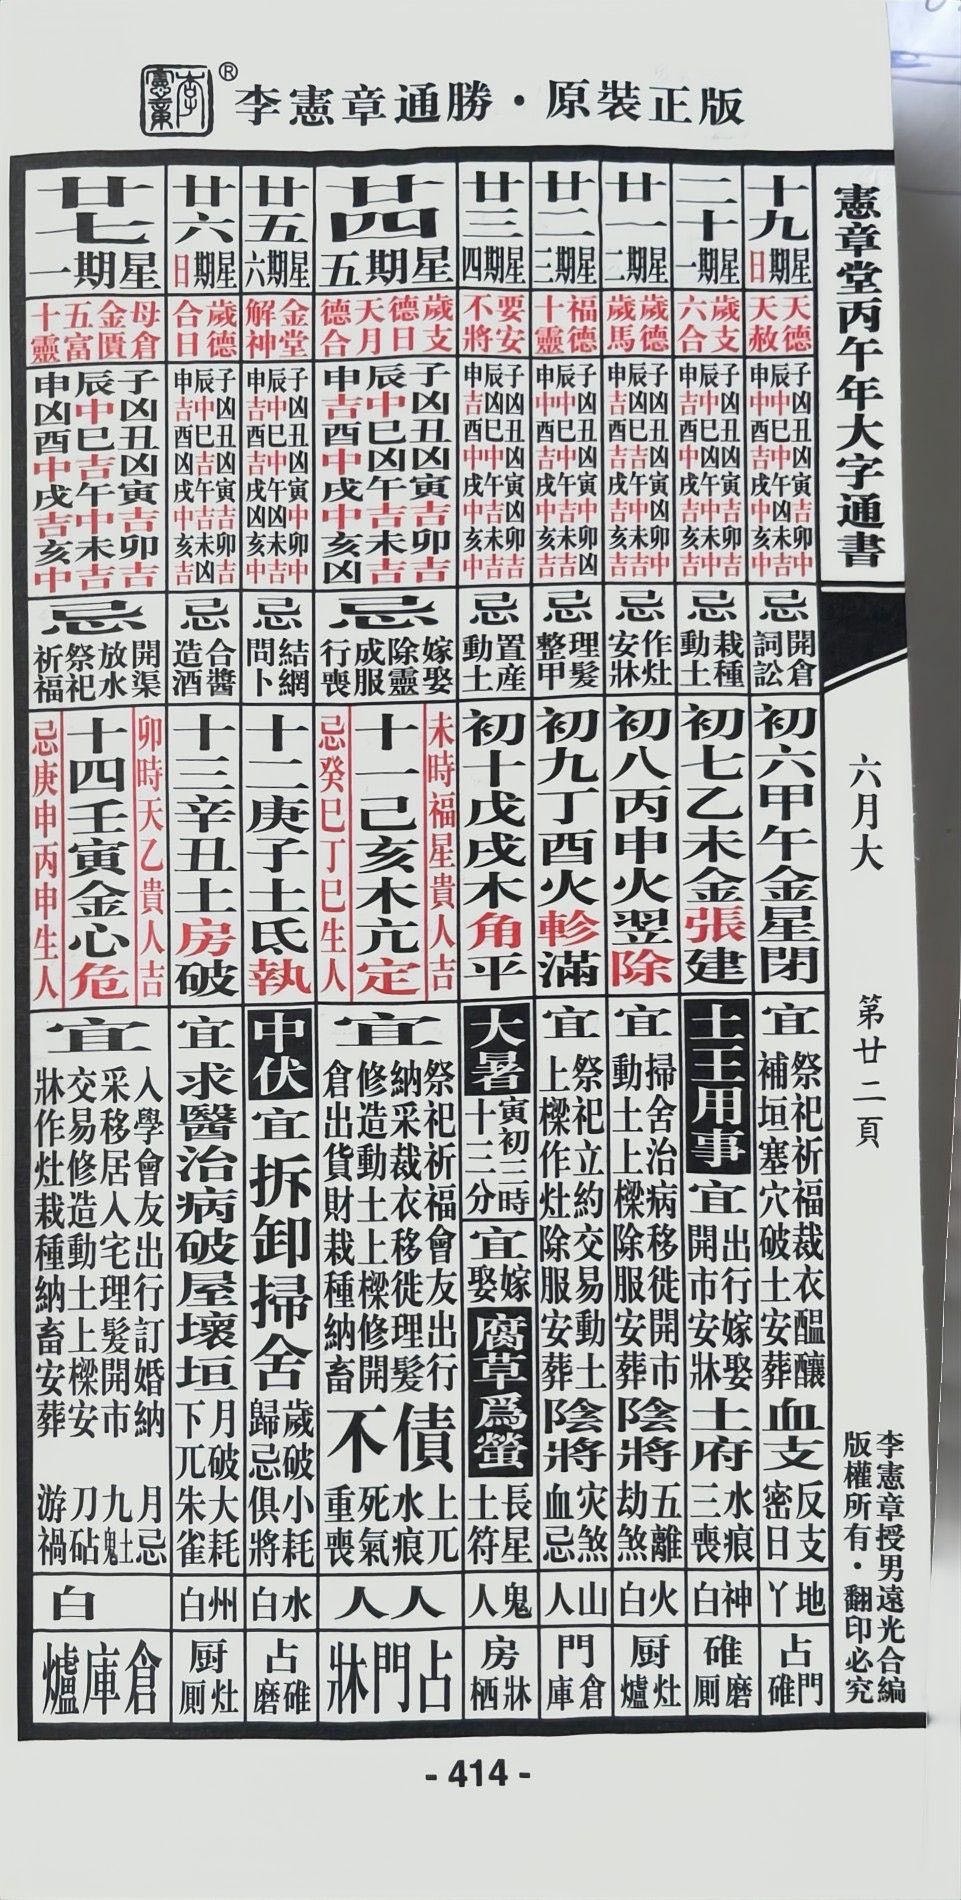 李憲章
李憲章通勝・原裝正版
憲章堂丙午年大字通書
六月大
第廿二頁
李憲章授男遠光合編
版權所有・翻印必究
十九
星期日
天德
天赦
子凶丑凶寅吉卯中
辰中巳中午凶未吉
申中酉吉戌中亥吉
忌
開倉
詞訟
初六甲午金星閉
宜
祭祀祈福裁衣醞釀
補垣塞穴破土安葬
血支
反支
密日
地
丫
占
門
碓
二十
星期一
歲支
六合
子凶丑凶寅吉卯吉
辰中巳吉午中未中
申吉酉凶戌中亥吉
忌
栽種
動土
初七乙未金張建
土王用事
宜
出行嫁娶
開市安牀
土府
水痕
三喪
神
白
碓
磨
廁
廿一
星期二
歲德
歲馬
忌
作灶
安牀
初八丙申火翌除
宜
掃舍治病移徙開市
動土上樑除服安葬
陰將
五離
劫煞
火
白
厨
灶
爐
廿二
星期三
福德
十靈
子凶丑凶寅中卯凶
辰中巳中午吉未吉
申中酉吉戌中亥吉
忌
理髮
整甲
初九丁酉火軫滿
宜
祭祀立約交易動土
上樑作灶除服安葬
陰將
灾煞
血忌
山
人
門
倉
庫
廿三
星期四
要安
不將
子凶丑凶寅凶卯吉
辰凶巳中午吉未吉
申吉酉中戌中亥中
忌
置產
動土
初十戊戌木角平
大暑
寅初三時
十二分
宜
嫁
娶
腐草為螢
長星
土符
鬼
人
房
牀
栖
廿四
星期五
歲支德
德日
天月
德合
子凶丑凶寅吉卯吉
辰中巳凶午吉未吉
申吉酉中戌中亥凶
忌
嫁娶
除靈
成服
行喪
未時福星貴人吉
十一己亥木亢定
忌癸巳丁巳生人
宜
祭祀祈福會友出行
納采裁衣移徙理髮
修造動土上樑修開
倉出貨財栽種納畜
債不
上兀
水痕
死氣
重喪
人
人
占門牀
廿五
星期六
金堂
解神
忌
結網
問卜
十二庚子土氐執
中伏
宜拆卸掃舍
歲破
歸忌
小耗
俱將
水
白
占
碓
磨
廿六
星期日
歲德
合日
子凶丑凶寅吉卯吉
辰中巳吉午吉未凶
申吉酉凶戌中亥吉
忌
合醬
造酒
十三辛丑土房破
宜求醫治病破屋壞垣
月破
下兀
大耗
朱雀
州
白
厨
灶
廁
廿七
星期一
母倉
金匱
五富
十靈
子凶丑凶寅吉卯吉
辰中巳吉午中未吉
申凶酉中戌吉亥中
忌
開渠
放水
祭祀
祈福
卯時天乙貴人吉
十四壬寅金心危
忌庚申丙申生人
宜
入學會友出行訂婚納
采移居入宅理髮開市
交易修造動土上樑安
牀作灶栽種納畜安葬
月忌
九土鬼
刀砧
游禍
白
倉庫爐
- 414 -